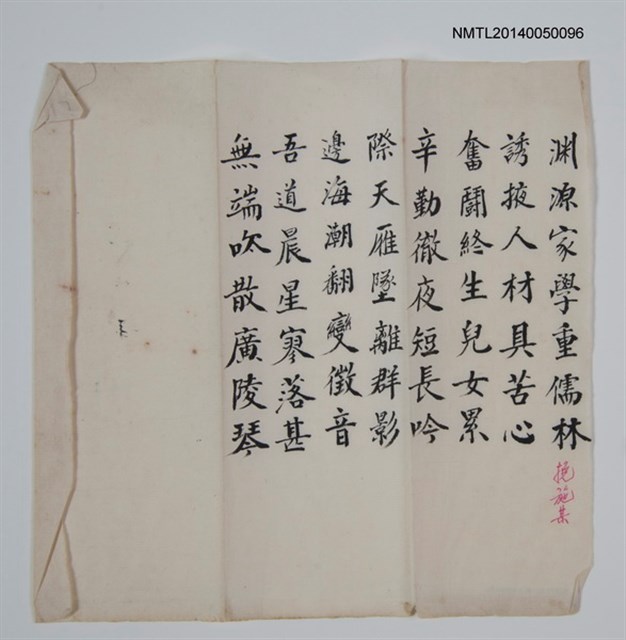 NMTL20140050096
淵源家學重儒林
誘掖人材具苦心
奮鬪終生兒女累
辛勤徹夜短長吟
際天雁墜離群影
邊海潮翻變徵音
吾道晨星寥落甚
無端吹散廣陵琴
挽施某